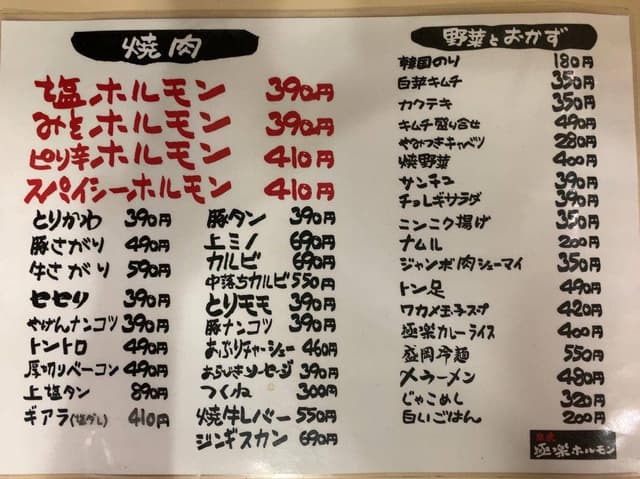 焼肉
塩ホルモン 390円
みそホルモン 390円
ピリ辛ホルモン 410円
スパイシーホルモン 410円
とりかわ 390円
豚さがり 490円
牛さがり 590円
セセリ 390円
やげんナンコツ 390円
トントロ 490円
厚切りベーコン 490円
上塩タン 890円
ギアラ(塩ダレ) 410円
豚タン 390円
上ミノ 690円
カルビ 690円
中落ちカルビ 550円
とりモモ 390円
豚ナンコツ 390円
あぶりチャーシュー 460円
あらびきソーセージ 390円
つくね 300円
焼牛レバー 550円
ジンギスカン 690円
野菜とおかず
韓国のり 180円
白菜キムチ 350円
カクテキ 350円
キムチ盛り合せ 490円
やみつきキャベツ 280円
焼野菜 400円
サンチュ 390円
チョレギサラダ 390円
ニンニク揚げ 350円
ナムル 200円
ジャンボ肉シューマイ 350円
トン足 490円
ワカメ玉子スープ 420円
極楽カレーライス 400円
盛岡冷麺 550円
〆ラーメン 480円
じゃこめし 320円
白いごはん 200円
極楽ホルモン